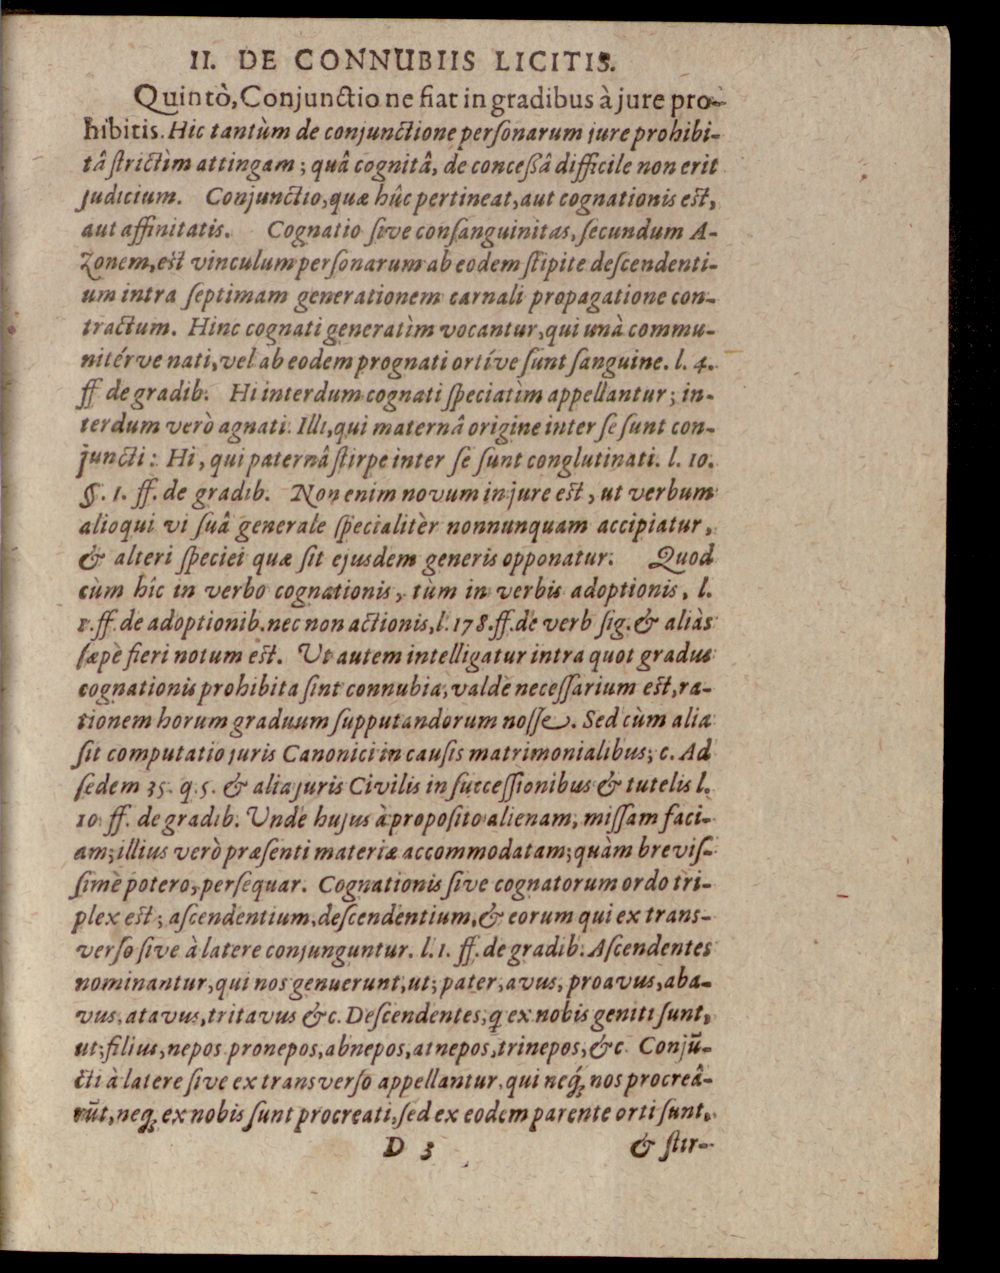 II. DE CONNUBIIS LICITIS.
Quintò, Conjunctio ne fiat in gradibus à jure pro-
hibitis. Hic tantùm de conjunctione personarum jure prohibi-
tâ strictìm attingam; quâ cognitâ, de conceßâ difficile non erit
judicium. Conjunctio, quæ hûc pertineat, aut cognationis est,
aut affinitatis. Cognatio sive consanguinitas, secundum A-
zonem, est vinculum personarum ab eodem stipite descendenti-
um intra septimam generationem carnali propagatione con-
tractum. Hinc cognati generatìm vocantur, qui unà commu-
nitérve nati, vel ab eodem prognati ortíve sunt sanguine. l. 4.
ff de gradib. Hi interdum cognati speciatìm appellantur; in-
terdum verò agnati. Illi, qui maternâ origine inter se sunt con-
juncti: Hi, qui paternâ stirpe inter se sunt conglutinati. l. 10.
§. 1. ff. de gradib. Non enim novum in jure est, ut verbum
alioqui vi suâ generale specialitèr nonnunquam accipiatur,
& alteri speciei quæ sit ejusdem generis opponatur. Quod
cùm hîc in verbo cognationis, tùm in verbis adoptionis, l.
1. ff. de adoptionib. nec non actionis, l. 178. ff. de verb sig. & aliàs
sæpè fieri notum est. Ut autem intelligatur intra quot gradus
cognationis prohibita sint connubia, valdè necessarium est, ra-
tionem horum graduum supputandorum nosse. Sed cùm alia
sit computatio juris Canonici in causis matrimonialibus; c. Ad
sedem 35. q. 5. & alia juris Civilis in successionibus & tutelis l.
10 ff. de gradib. Unde hujus à proposito alienam, missam faci-
am; illius verò præsenti materiæ accommodatam; quàm brevis-
simè potero, persequar. Cognationis sive cognatorum ordo tri-
plex est; ascendentium, descendentium, & eorum qui ex trans-
verso sive à latere conjunguntur. l. 1. ff. de gradib. Ascendentes
nominantur, qui nos genuerunt, ut; pater, avus, proavus, aba-
vus, atavus, tritavus &c. Descendentes, q ex nobis geniti sunt,
ut; filius, nepos pronepos, abnepos, atnepos, trinepos, &c. Conjū-
cti à latere sive ex transverso appellantur, qui neq́; nos procreâ-
rūt, neq; ex nobis sunt procreati, sed ex eodem parente orti sunt,
D 3 & stir-